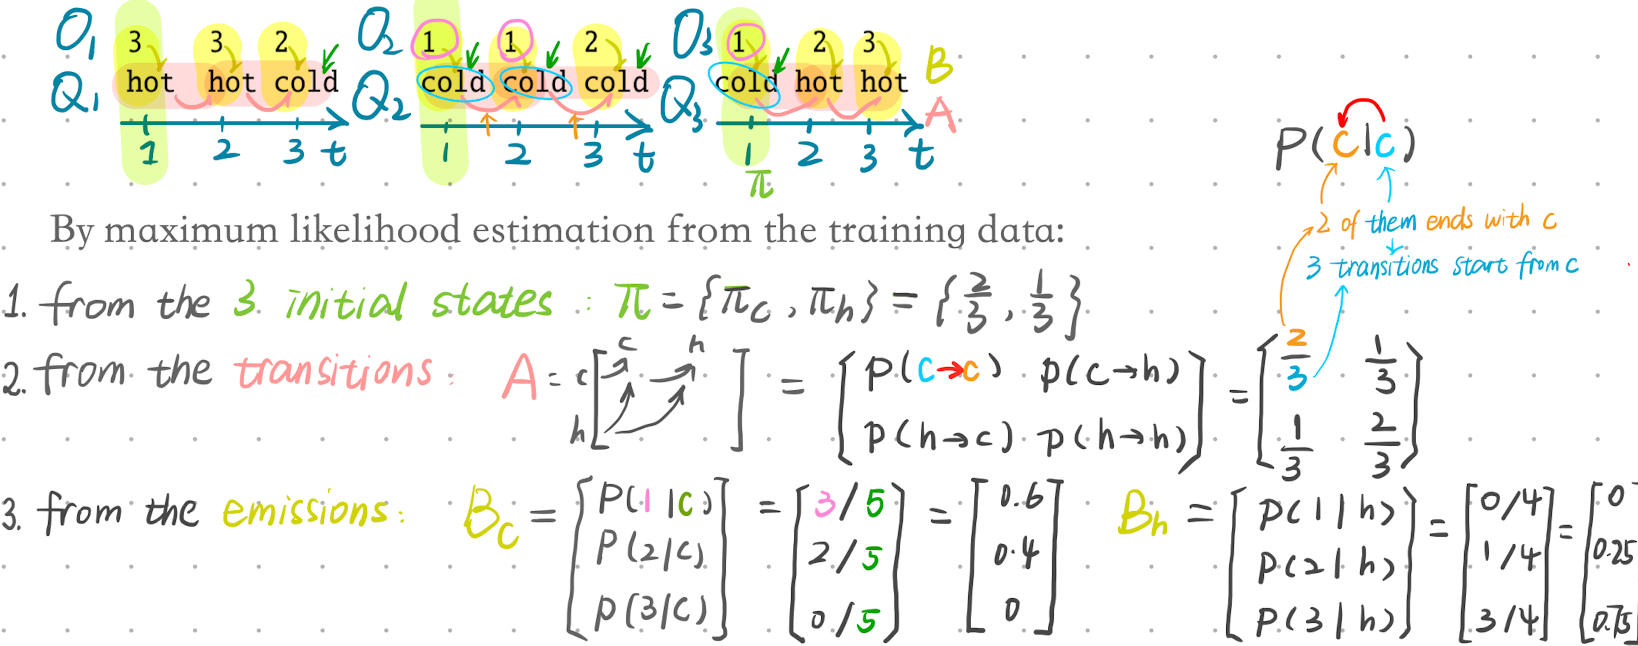 O₁ 3 3 2 O₂ 1 1 2 O₃ 1 2 3
Q₁ hot hot cold Q₂ cold cold cold Q₃ cold hot hot B
A
1 2 3 t 1 2 3 t 1 2 3 t
π
P(c|c)
2 of them ends with c
3 transitions start from c
By maximum likelihood estimation from the training data:
1. from the 3 initial states : π = {π_c, π_h} = {2/3, 1/3}
2. from the transitions: A = c h [ c h ] = [ P(c→c) P(c→h) P(h→c) P(h→h) ] = [ 2/3 1/3 1/3 2/3 ]
3. from the emissions: B_c = [ P(1|c) P(2|c) P(3|c) ] = [ 3/5 2/5 0/5 ] = [ 0.6 0.4 0 ] B_h = [ P(1|h) P(2|h) P(3|h) ] = [ 0/4 1/4 3/4 ] = [ 0 0.25 0.75